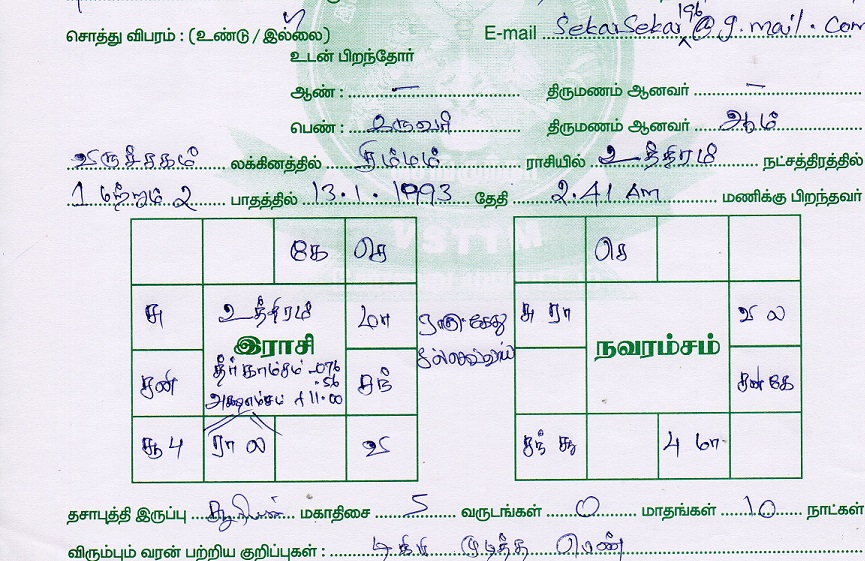 சொத்து விபரம் : (உண்டு / இல்லை) E-mail SekarSekar196@g.mail.com
உடன் பிறந்தோர்
ஆண் : — திருமணம் ஆனவர் —
பெண் : ஒருவர் திருமணம் ஆனவர் ஆம்
விருச்சிகம் லக்கினத்தில் சிம்மம் ராசியில் உத்திரம் நட்சத்திரத்தில்
1 மற்றும் 2 பாதத்தில் 13.1.1993 தேதி 2.41 Am மணிக்கு பிறந்தவர்
கே செ செ
சு உத்திரம் மா சு ரா வி ல
இராசி நவரம்சம்
தீர்காம்சம் -076
.56
சனி சந் சனி கே
அட்சாம்சம் +11.00
சூ பு ரா ல வி சந் சூ பு மா
தசாபுத்தி இருப்பு சூரியன் மகாதிசை 5 வருடங்கள் 0 மாதங்கள் 10 நாட்கள்
விரும்பும் வரன் பற்றிய குறிப்புகள் : டிகிரி முடித்த பெண்